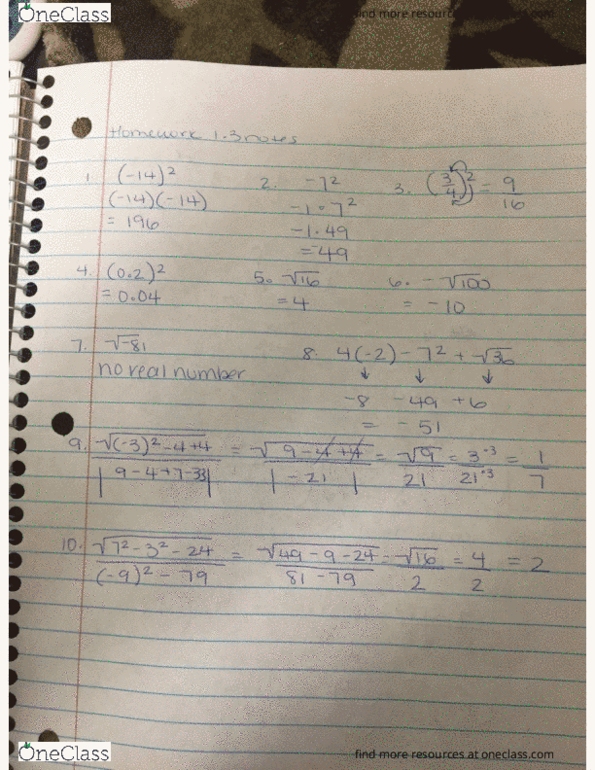 OneClass
find more resources at oneclass.com
Homework 1.3 notes
1. (-14)²
(-14)(-14)
= 196
2. -7²
-1·7²
-1·49
= -49
3. (3/4)² = 9/16
4. (0.2)²
= 0.04
5. √16
= 4
6. -√100
= -10
7. √-81
no real number
8. 4(-2) - 7² + √36
↓ ↓ ↓
-8 -49 +6
= -51
9. √(-3)² - 4 + 4 / |9 - 4 + 7 - 33| = √9 - 4 + 4 / |-21| = √9 / 21 = 3÷3 / 21÷3 = 1/7
10. √7² - 3² - 24 / (-9)² - 79 = √49 - 9 - 24 / 81 - 79 = √16 / 2 = 4/2 = 2
OneClass
find more resources at oneclass.com